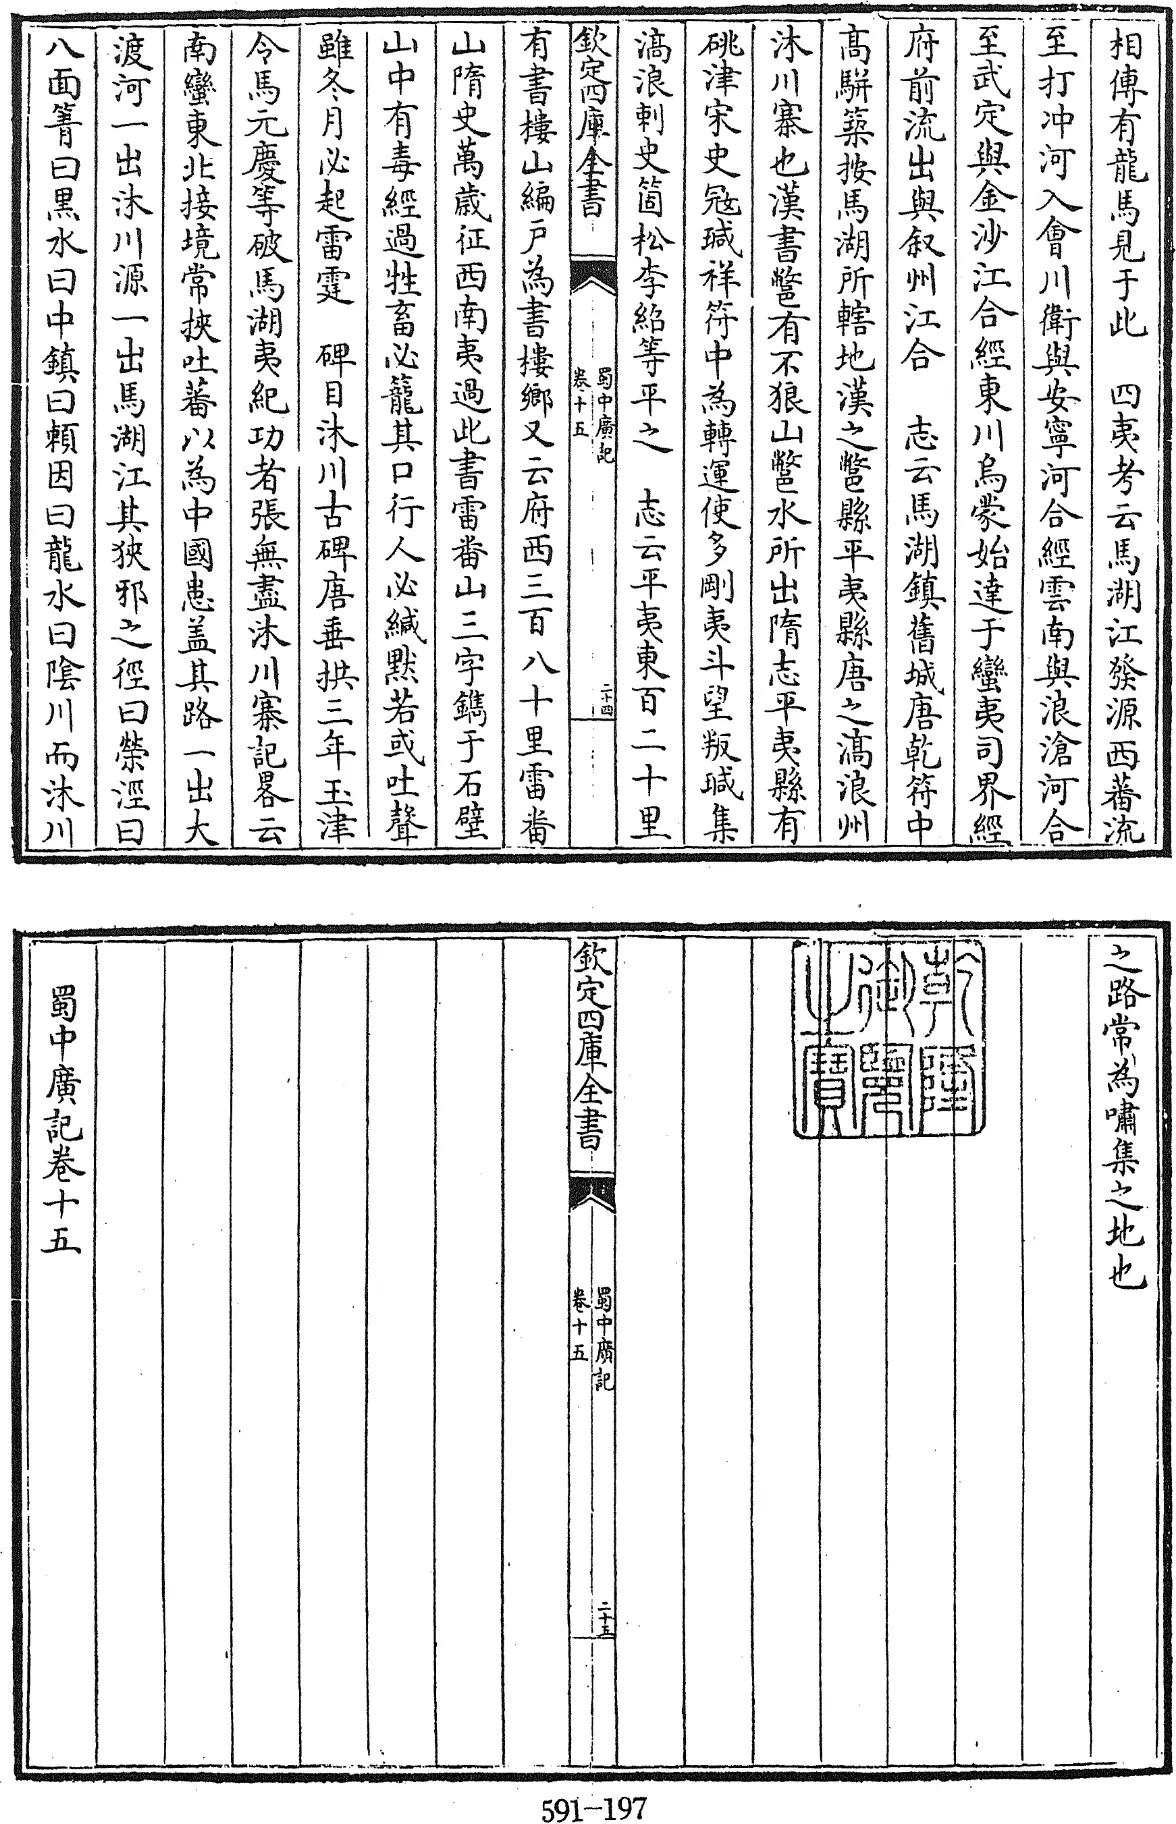 相傳有龍馬見于此　四夷考云馬湖江發源西蕃流
至打冲河入會川衛與安寧河合經雲南與浪滄河合
至武定與金沙江合經東川烏蒙始達于蠻夷司界經
府前流出與叙州江合　志云馬湖鎮舊城唐乾符中
髙駢築按馬湖所轄地漢之鄨縣平夷縣唐之滈浪州
沐川寨也漢書鄨有不狼山鄨水所出隋志平夷縣有
硊津宋史冦瑊祥符中為轉運使多剛夷斗望叛瑊集
滈浪刺史箇松李紹等平之　志云平夷東百二十里
欽定四庫全書
蜀中廣記
卷十五
二十四
有書樓山編戸為書樓鄉又云府西三百八十里雷畨
山隋史萬歲征西南夷過此書雷畨山三字鐫于石壁
山中有毒經過牲畜必籠其口行人必緘默若或吐聲
雖冬月必起雷霆　碑目沐川古碑唐垂拱三年玉津
令馬元慶等破馬湖夷紀功者張無盡沐川寨記畧云
南蠻東北接境常挾吐蕃以為中國患盖其路一出大
渡河一出沐川源一出馬湖江其狹邪之徑曰滎涇曰
八面箐曰黒水曰中鎮曰賴因曰龍水曰隂川而沐川
之路常為嘯集之地也
乾隆御覽之寶
欽定四庫全書
蜀中廣記
卷十五
二十五
蜀中廣記卷十五
591-197